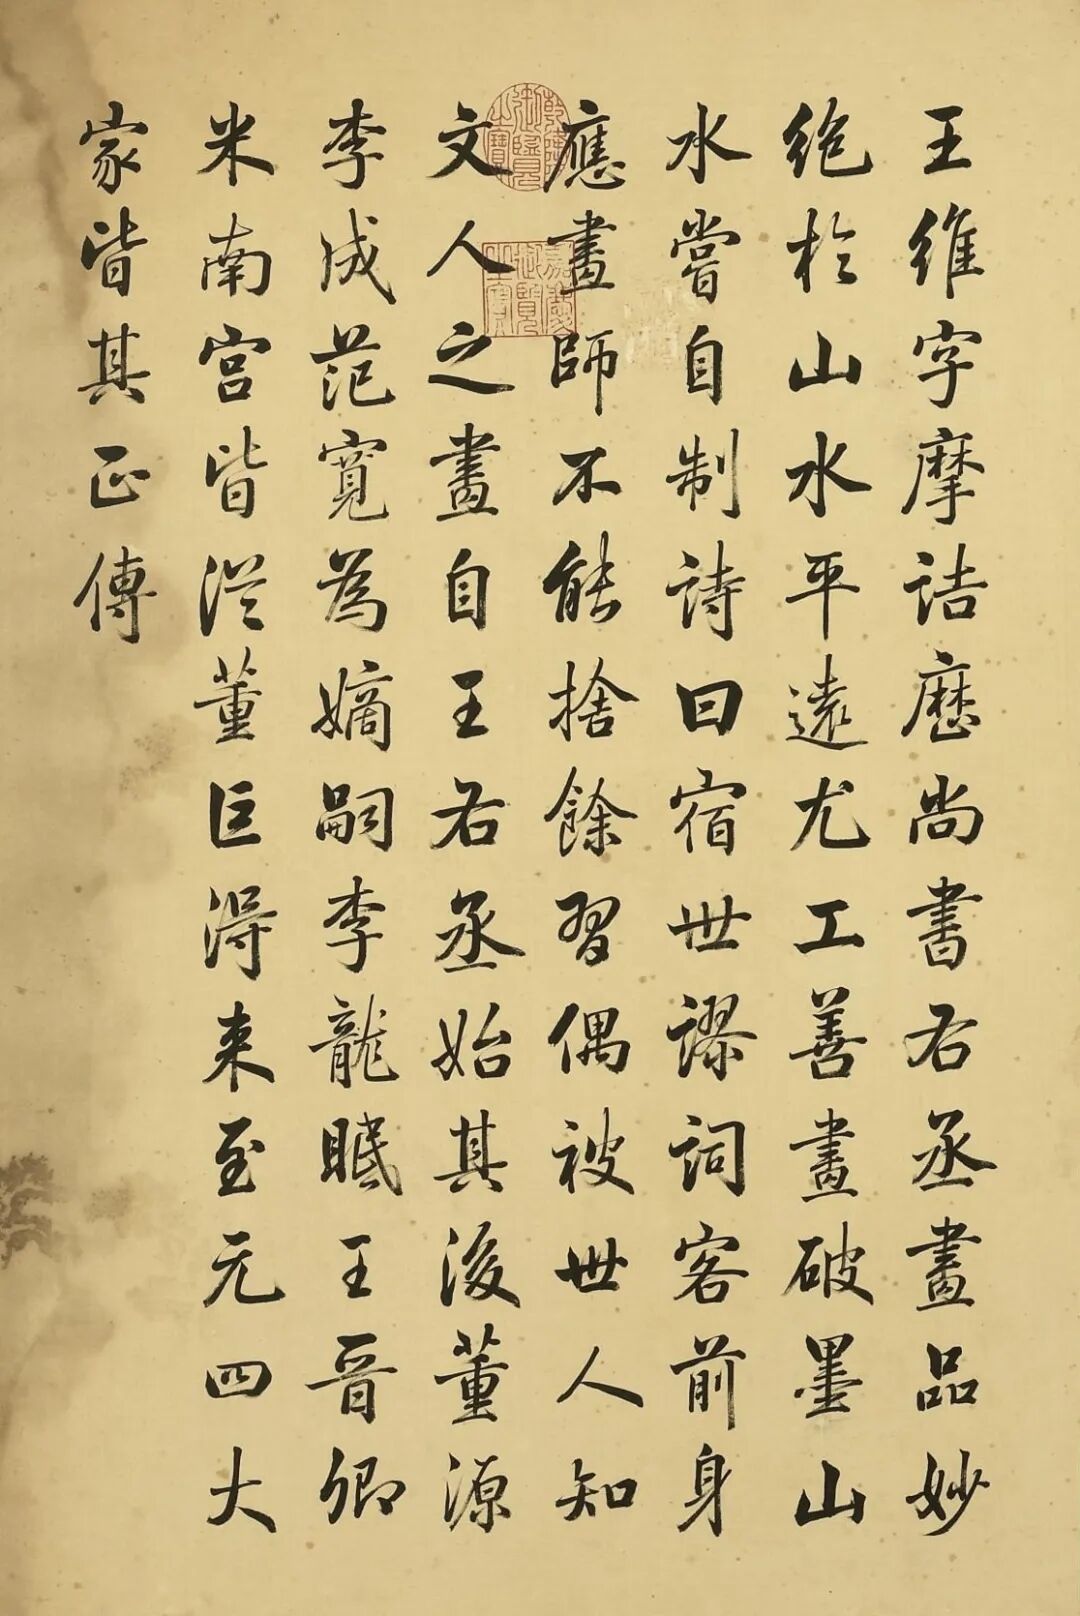 王維字摩詰歷尚書右丞畫品妙
絶於山水平遠尤工善畫破墨山
水嘗自制詩曰宿世謬詞客前身
應畫師不能捨餘習偶被世人知
文人之畫自王右丞始其後董源
李成范寬為嫡嗣李龍眠王晉卿
米南宮皆從董巨得来至元四大
家皆其正傳
乾隆御覽之寶
嘉慶御覽之寶